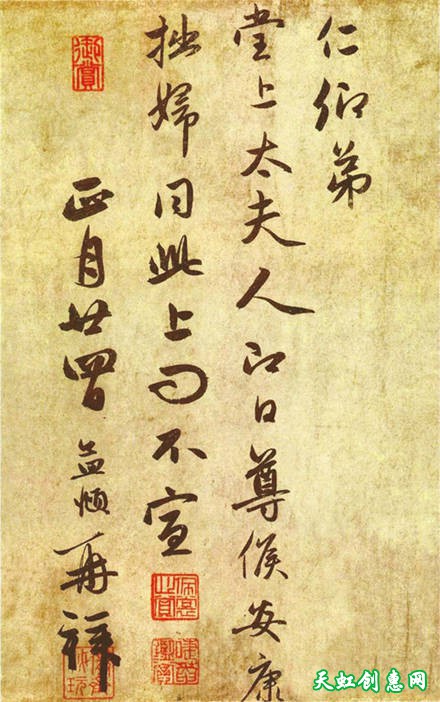 仁卿弟
堂上太夫人即日尊候安康
拙婦同此上問不宣
正月廿四日孟頫再拜
御賞
天虹创惠网